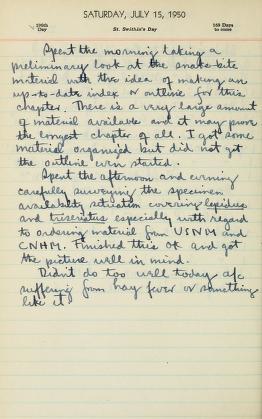 SATURDAY, JULY 15, 1950
196th Day
St. Swithin's Day
169 Days to come
Spent the morning taking a
preliminary look at the snake-bite
material with the idea of making an
up-to-date index or outline for this
chapter. There is a very large amount
of material available and it may prove
the longest chapter of all. I got some
material organized but did not get
the outline even started.
Spent the afternoon and evening
carefully surveying the specimen
availability situation covering lepidus
and triseriatus especially with regard
to ordering material from USNM and
CNHM. Finished this OK and got
the picture well in mind.
Didn't do too well today a/c
suffering from hay fever or something
like it.